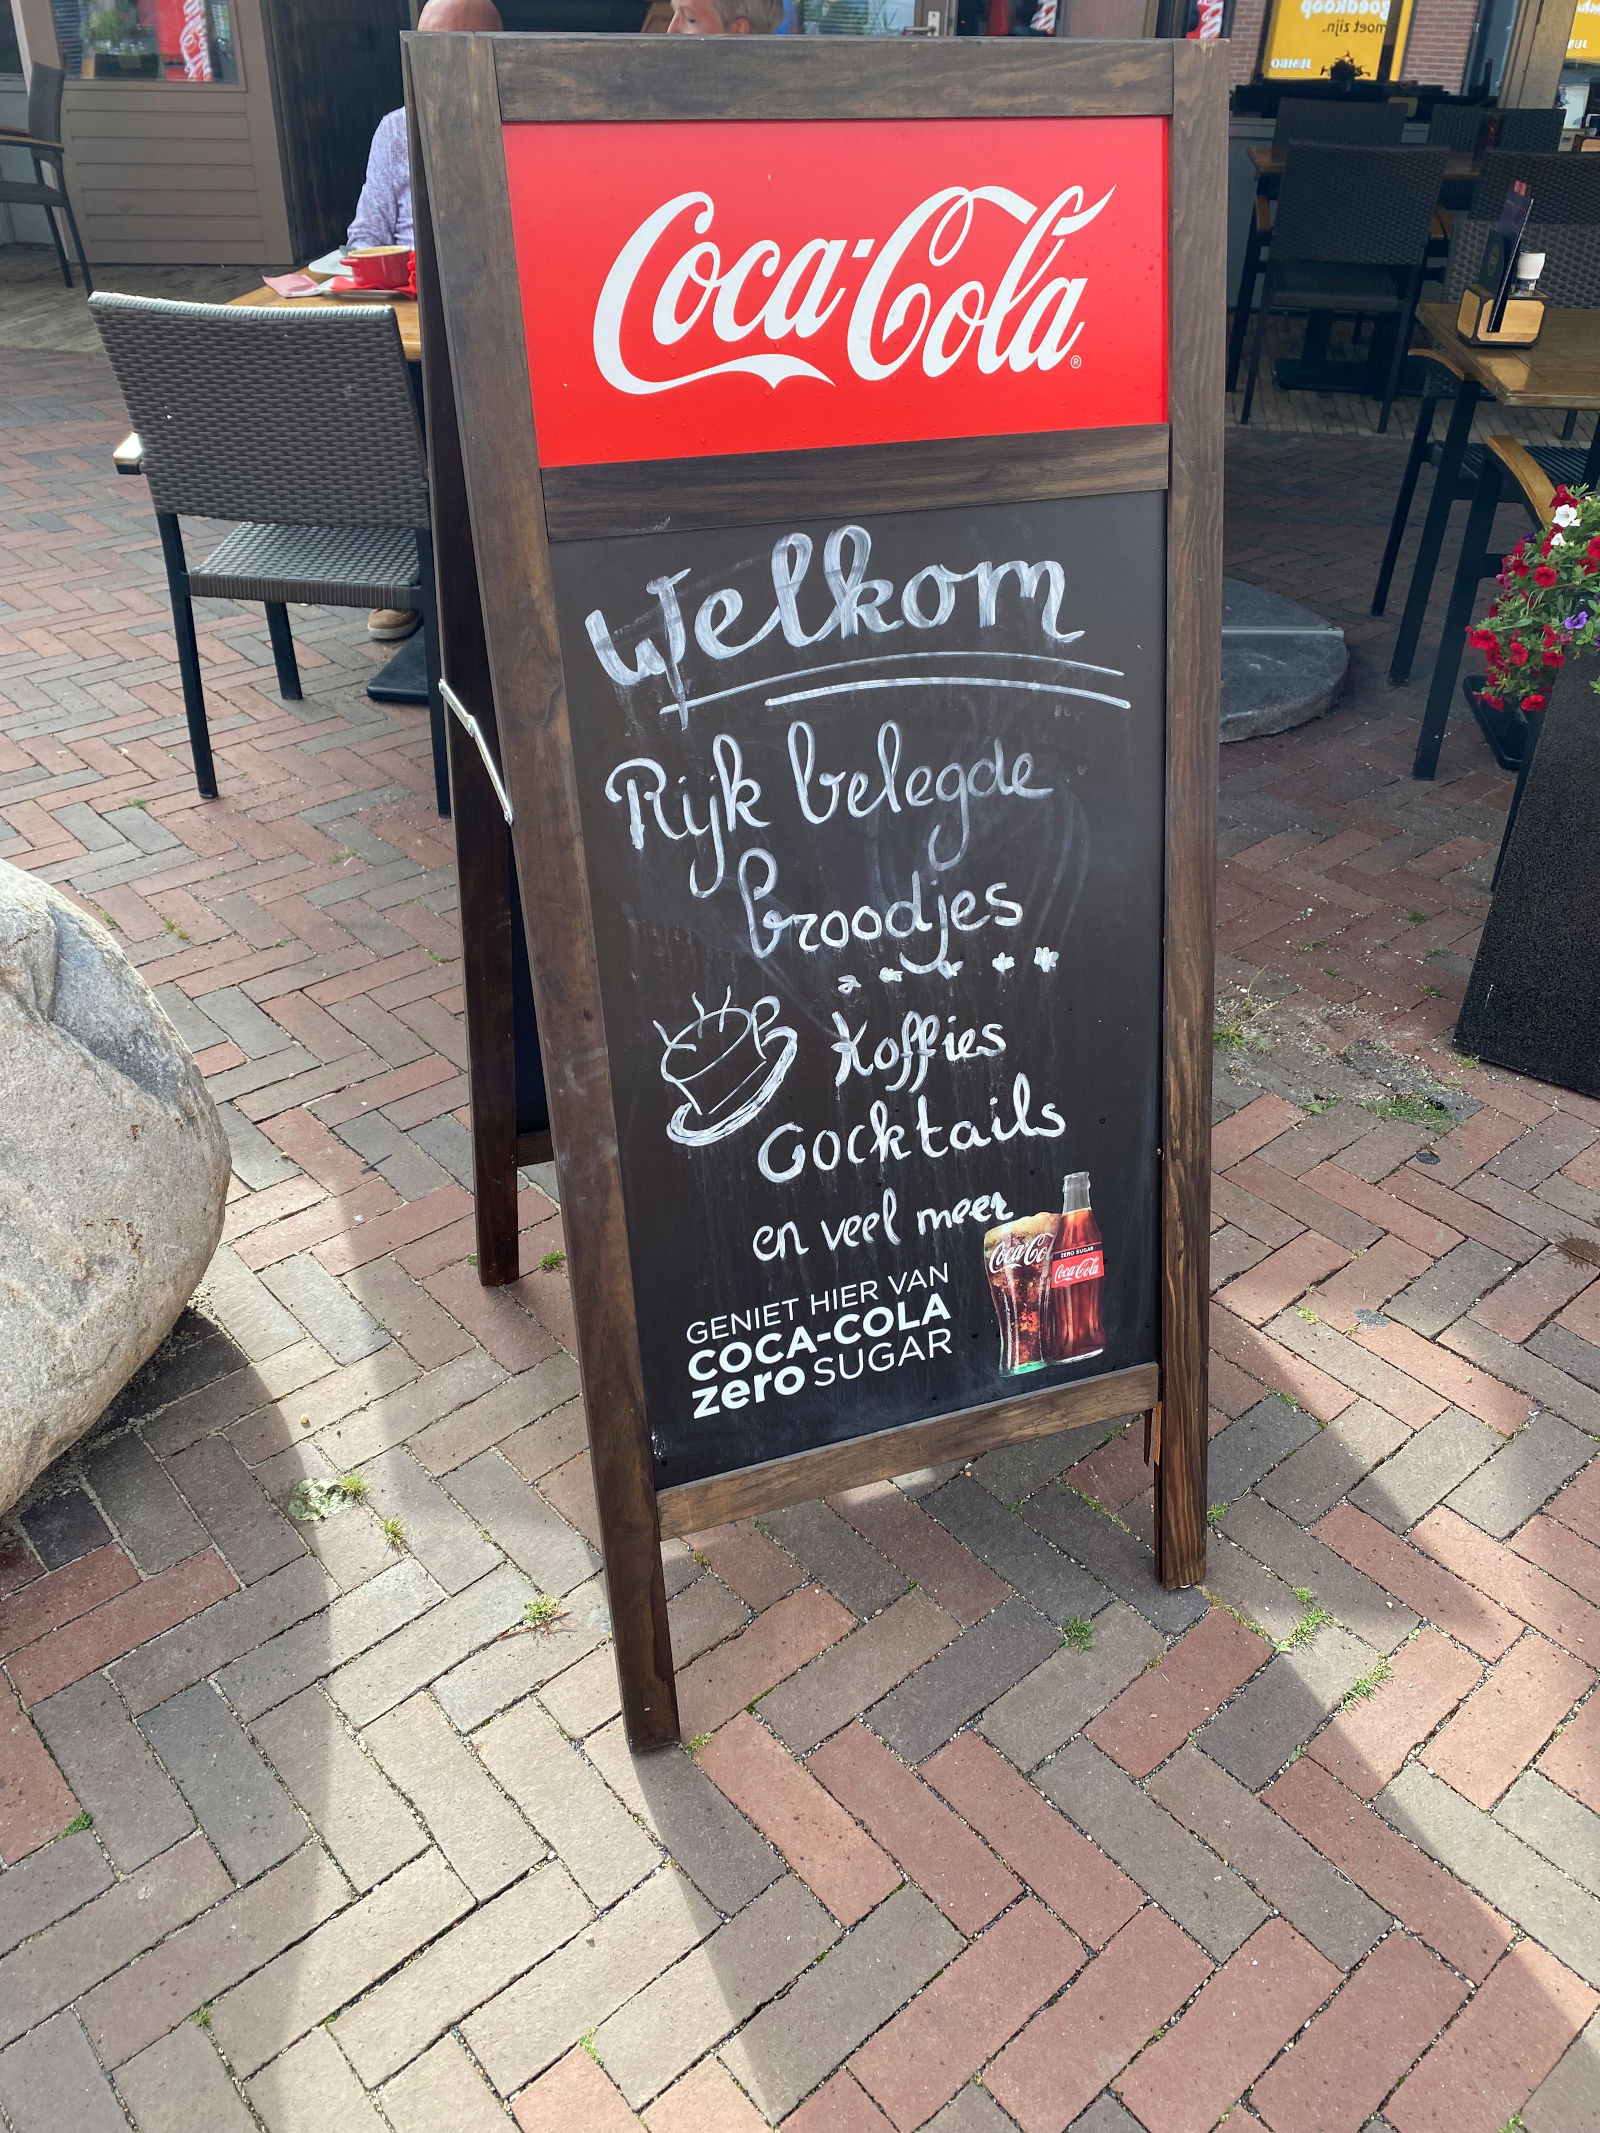 goedkoop
moet zijn.
JUMBO
Coca-Cola®
Welkom
Rijk belegde
broodjes
Koffies
Cocktails
en veel meer
Coca-Cola
ZERO SUGAR
Coca-Cola
GENIET HIER VAN
COCA-COLA
zero SUGAR